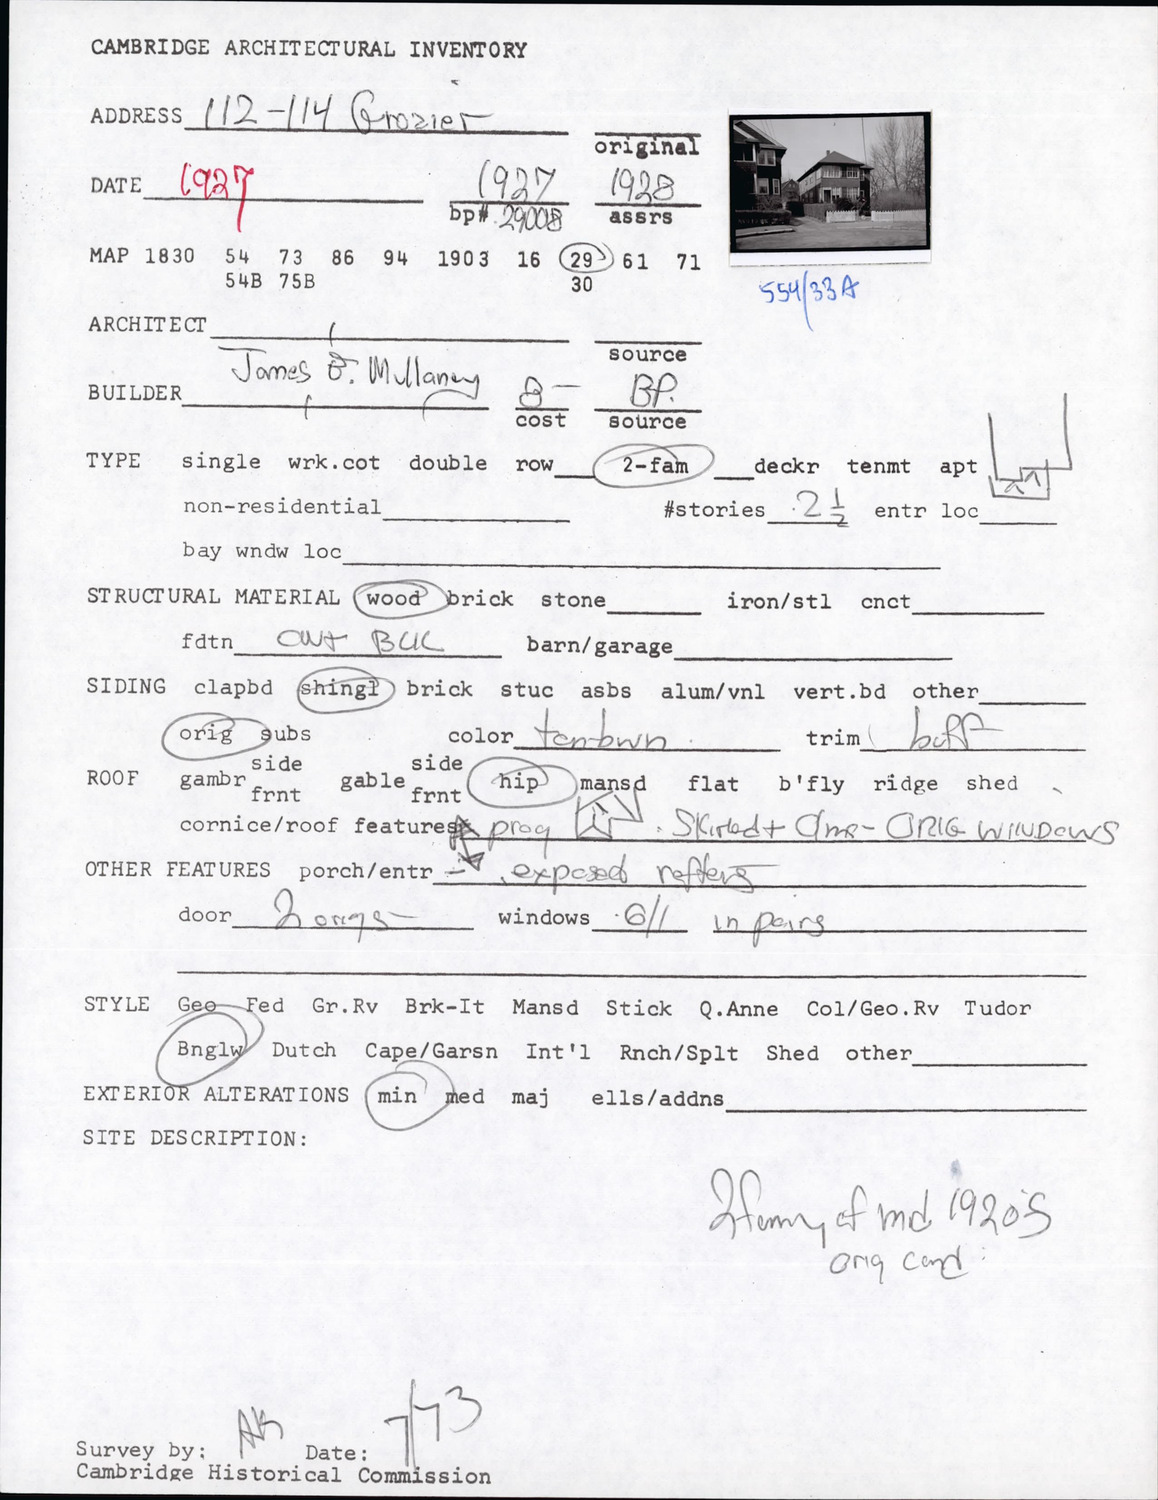 CAMBRIDGE ARCHITECTURAL INVENTORY
ADDRESS 112-114 Grozier
original
DATE 1927 1927 1928
bp# 29008 assrs
MAP 1830 54 73 86 94 1903 16 29 61 71
54B 75B 30
554/33A
ARCHITECT
source
James Mullaney
BUILDER 8- BP.
cost source
TYPE single wrk.cot double row 2-fam deckr tenmt apt
non-residential #stories 2 1/2 entr loc
bay wndw loc
STRUCTURAL MATERIAL wood brick stone iron/stl cnct
fdtn barn/garage
SIDING clapbd shingl brick stuc asbs alum/vnl vert.bd other
orig subs color tan-bwn trim buff
side side
ROOF gambr gable hip mansd flat b'fly ridge shed
frnt frnt
cornice/roof features proj Skirted ORIG WINDOWS
OTHER FEATURES porch/entr exposed rafters
door 2 windows 6/1 in pairs
STYLE Geo Fed Gr.Rv Brk-It Mansd Stick Q.Anne Col/Geo.Rv Tudor
Bnglw Dutch Cape/Garsn Int'l Rnch/Splt Shed other
EXTERIOR ALTERATIONS min med maj ells/addns
SITE DESCRIPTION:
2 of mid 1920's
orig cond
AK 7/73
Survey by: Date:
Cambridge Historical Commission